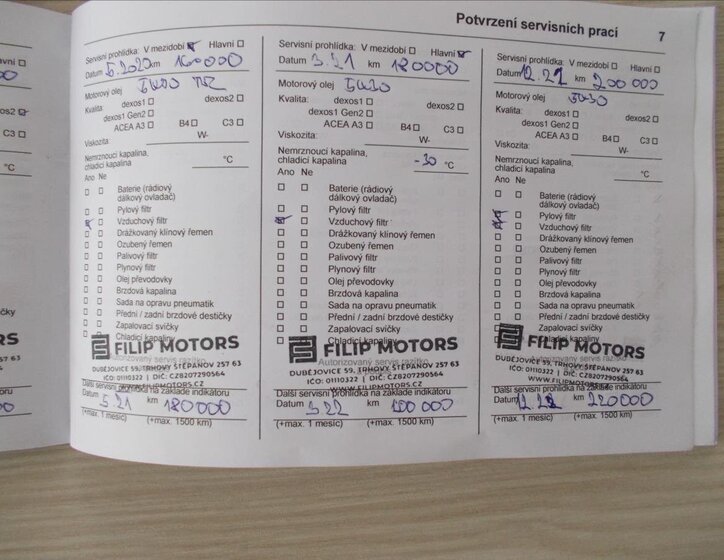 Potvrzení servisních prací 7
Servisní prohlídka: V mezidobí Hlavní
Datum 5.2020 km 160000
Motorový olej 5W30
Kvalita: dexos1 dexos2
dexos1 Gen2
ACEA A3 B4 C3
Viskozita: W-
Nemrznoucí kapalina,
chladicí kapalina °C
Ano Ne
Baterie (rádiový
dálkový ovladač)
Pylový filtr
Vzduchový filtr
Drážkovaný klínový řemen
Ozubený řemen
Palivový filtr
Plynový filtr
Olej převodovky
Brzdová kapalina
Sada na opravu pneumatik
Přední / zadní brzdové destičky
Zapalovací svíčky
Chladicí kapalina
FILIP MOTORS
Autorizovaný servis razítko
DUBĚJOVICE 59, TRHOVÝ ŠTĚPÁNOV 257 63
IČO: 01110322 | DIČ: CZ8207290564
WWW.FILIPMOTORS.CZ
Další servisní prohlídka na základě indikátoru
Datum 5.21 km 180000
(+max. 1 měsíc) (+max. 1500 km)
Servisní prohlídka: V mezidobí Hlavní
Datum 3.21 km 180000
Motorový olej 5W30
Kvalita: dexos1 dexos2
dexos1 Gen2
ACEA A3 B4 C3
Viskozita: W-
Nemrznoucí kapalina,
chladicí kapalina -30 °C
Ano Ne
Baterie (rádiový
dálkový ovladač)
Pylový filtr
Vzduchový filtr
Drážkovaný klínový řemen
Ozubený řemen
Palivový filtr
Plynový filtr
Olej převodovky
Brzdová kapalina
Sada na opravu pneumatik
Přední / zadní brzdové destičky
Zapalovací svíčky
Chladicí kapalina
FILIP MOTORS
Autorizovaný servis razítko
DUBĚJOVICE 59, TRHOVÝ ŠTĚPÁNOV 257 63
IČO: 01110322 | DIČ: CZ8207290564
WWW.FILIPMOTORS.CZ
Další servisní prohlídka na základě indikátoru
Datum 3.22 km 200 000
(+max. 1 měsíc) (+max. 1500 km)
Servisní prohlídka: V mezidobí Hlavní
Datum 12.21 km 200 000
Motorový olej 5W30
Kvalita: dexos1 dexos2
dexos1 Gen2
ACEA A3 B4 C3
Viskozita: W-
Nemrznoucí kapalina,
chladicí kapalina °C
Ano Ne
Baterie (rádiový
dálkový ovladač)
Pylový filtr
Vzduchový filtr
Drážkovaný klínový řemen
Ozubený řemen
Palivový filtr
Plynový filtr
Olej převodovky
Brzdová kapalina
Sada na opravu pneumatik
Přední / zadní brzdové destičky
Zapalovací svíčky
FILIP MOTORS
Autorizovaný servis razítko
DUBĚJOVICE 59, TRHOVÝ ŠTĚPÁNOV 257 63
IČO: 01110322 | DIČ: CZ8207290564
WWW.FILIPMOTORS.CZ
Další servisní prohlídka na základě indikátoru
Datum 12.22 km 220000
(+max. 1 měsíc) (+max. 1500 km)